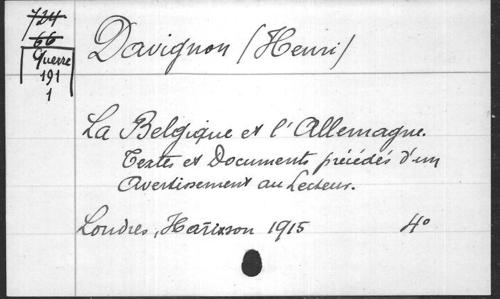 724
66
Guerre
191
1
Davignon (Henri)
La Belgique et l'Allemagne.
Textes et Documents précédés d'un
Avertissement au Lecteur.
Londres, Harrison 1915 4°